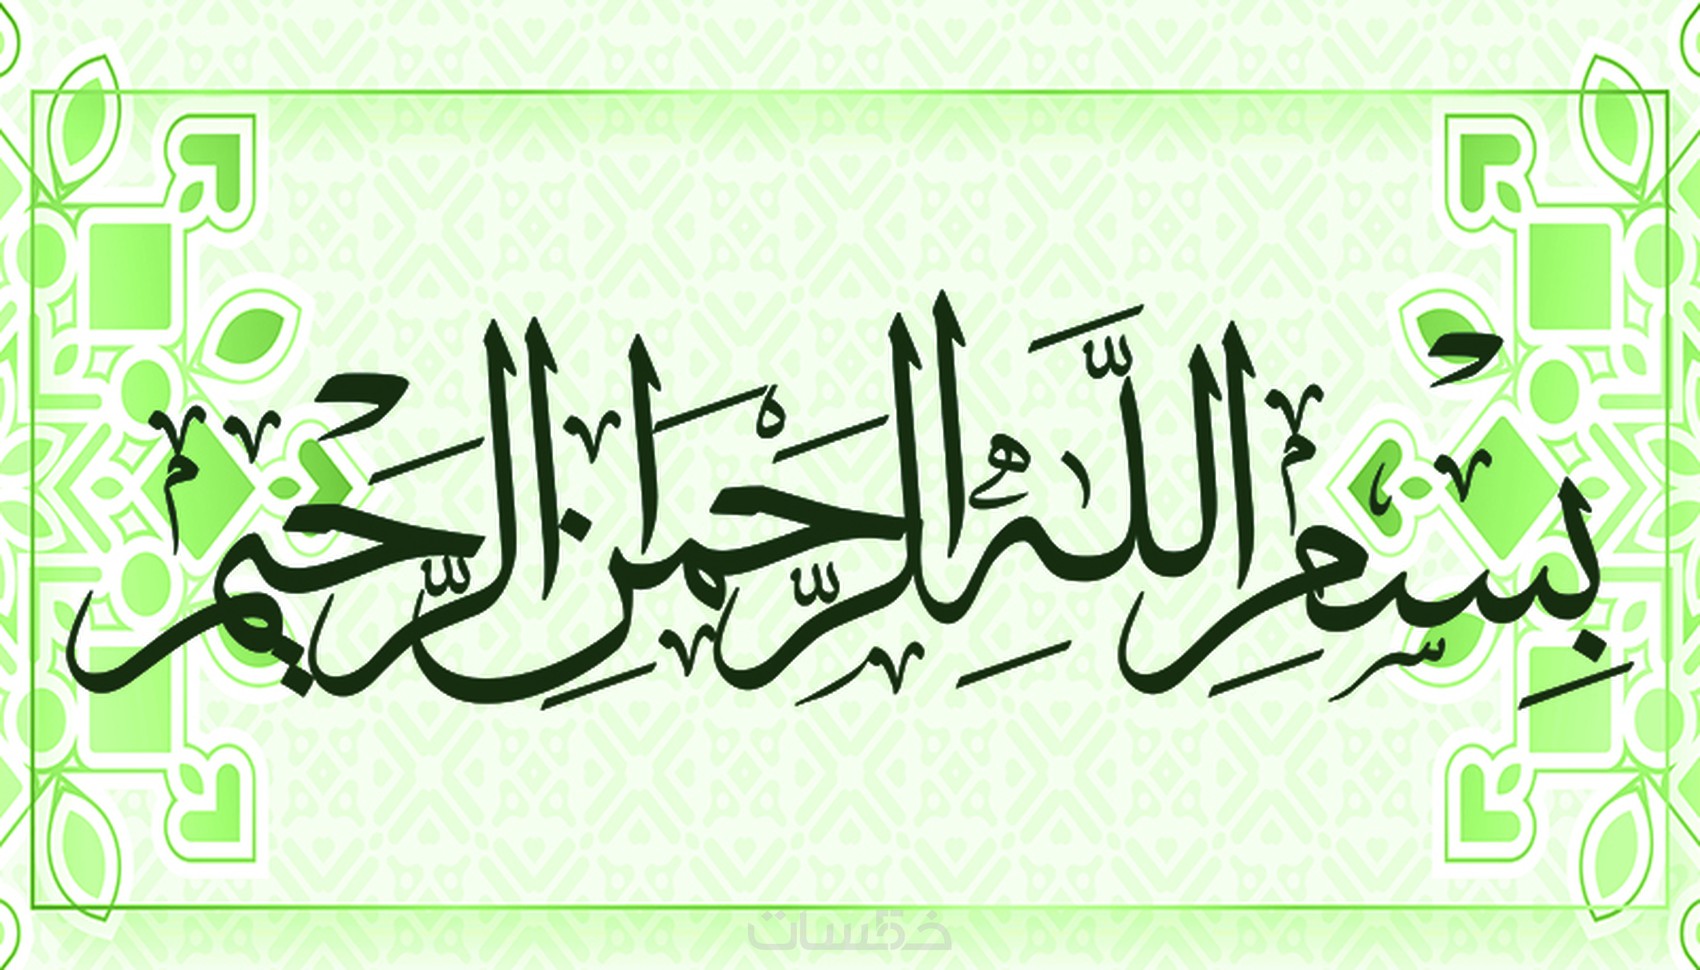 بِسْمِ اللَّهِ الرَّحْمَانِ الرَّحِيمِ
خمسات